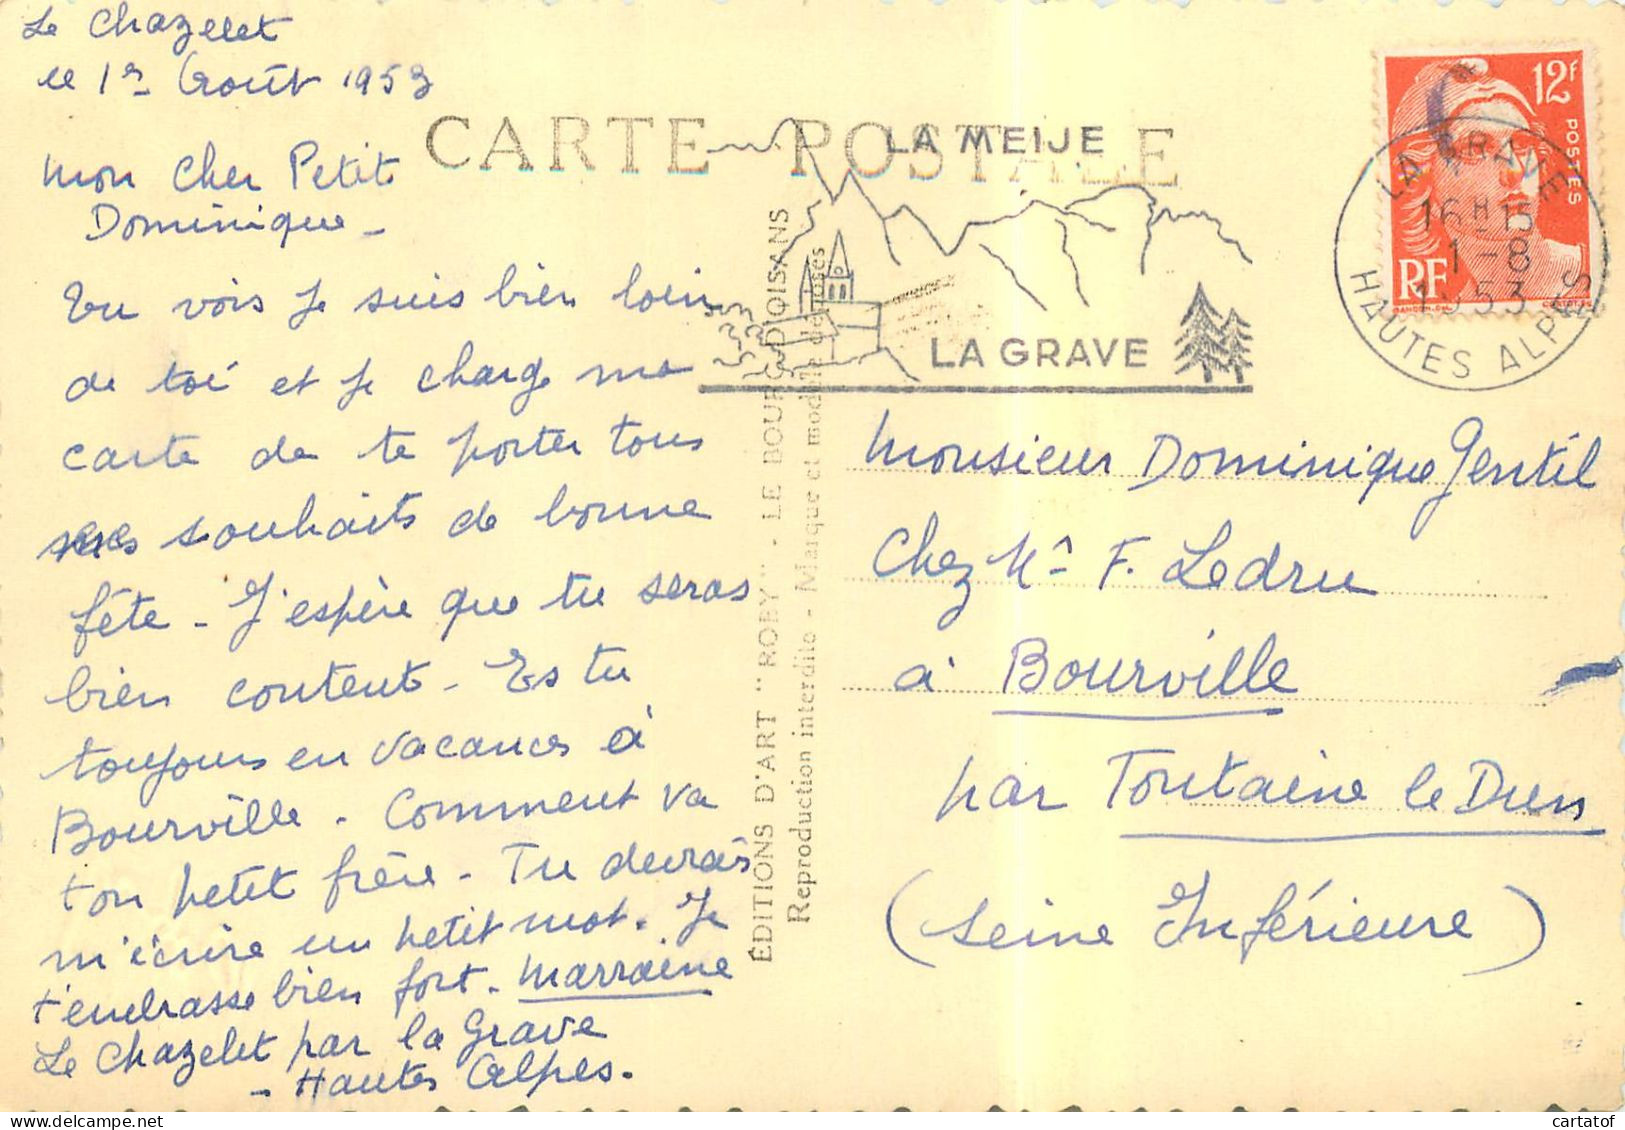 Le Chazelet
le 1er Août 1953
CARTE POSTALE
Mon Cher Petit
Dominique -
Tu vois je suis bien loin
de toi et je charge ma
carte de te porter tous
mes souhaits de bonne
fête - J'espère que tu seras
bien content - Es tu
toujours en vacances à
Bourville - Comment va
ton petit frère - Tu devrais
m'écrire un petit mot. Je
t'embrasse bien fort - Marraine
Le Chazelet par la Grave
- Hautes Alpes.
ÉDITIONS D'ART "ROBY" - LE BOURG-D'OISANS
Reproduction interdite - Marque et modèle déposés
LA MEIJE
LA GRAVE
12F
POSTES
RF
GANDON
LA GRAVE
16H15
1-8
1953
HAUTES ALPES
Monsieur Dominique Gentil
Chez Mr F. Ledru
à Bourville
par Fontaine le Dun
(Seine Inférieure)
cartatof